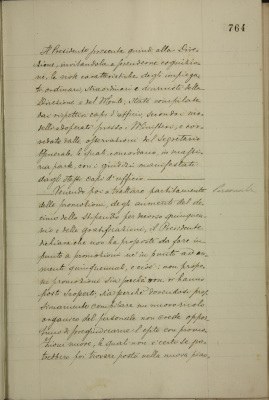 764
Il Presidente presenta quindi alla Dire-
zione, invitandola a prenderne cognizio-
ne, le note caratteristiche degli impiega-
ti ordinari, straordinari e diurnisti della
Direzione e del Monte, state compilate
dai rispettivi capi d'uffizio, secondo i mo-
delli adoperati presso i Ministeri, e corre-
date dalle osservazioni del Segretario
Generale, le quali concordano, in massi-
ma parte, con i giudizi manifestati
dagli stessi capi d'uffizio.
Venendo poi a trattare partitamente
delle promozioni, degli aumenti del de-
cimo dello stipendio per decorso quinquen-
nio e delle gratificazioni, il Presidente
dichiara che non ha proposte da fare, in
punto a promozioni nè in punto ad au-
menti quinquennali, e ciò: non propo-
ne promozioni sia perchè non vi hanno
posti scoperti, sia perchè dovendosi pros-
simamente compilare un nuovo ruolo
organico del personale non crede oppor-
tuno di pregiudicarne l'esito con promo-
zioni nuove, le quali non è certo se po-
trebbero poi trovare posto nella nuova pian-
Personale